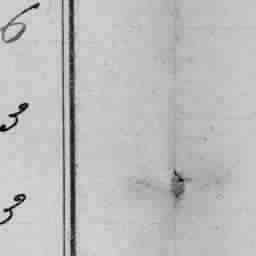 6
3
3